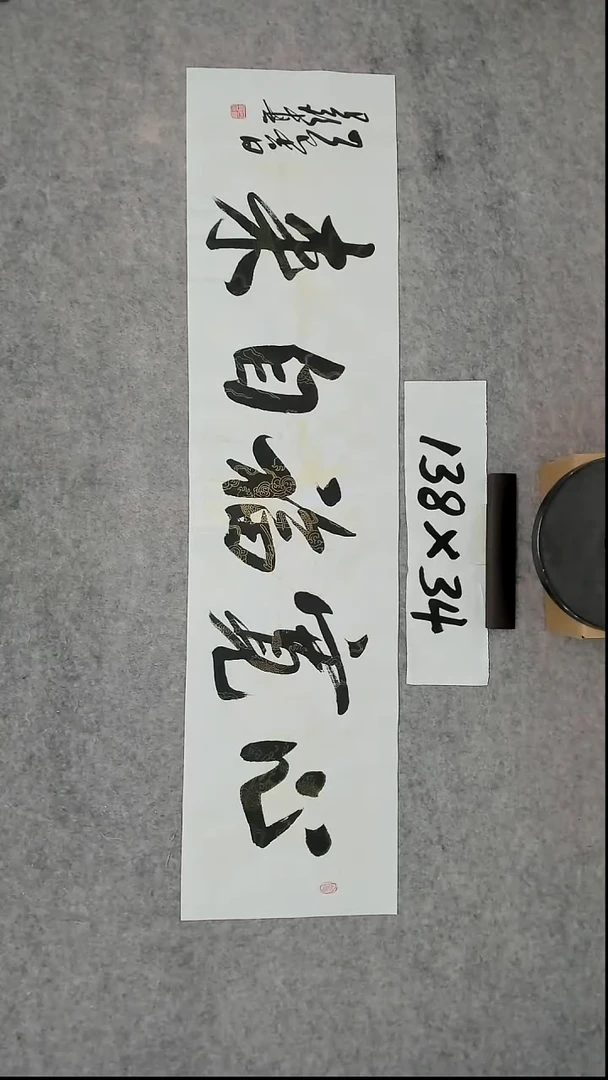 心宽福自来
138×34